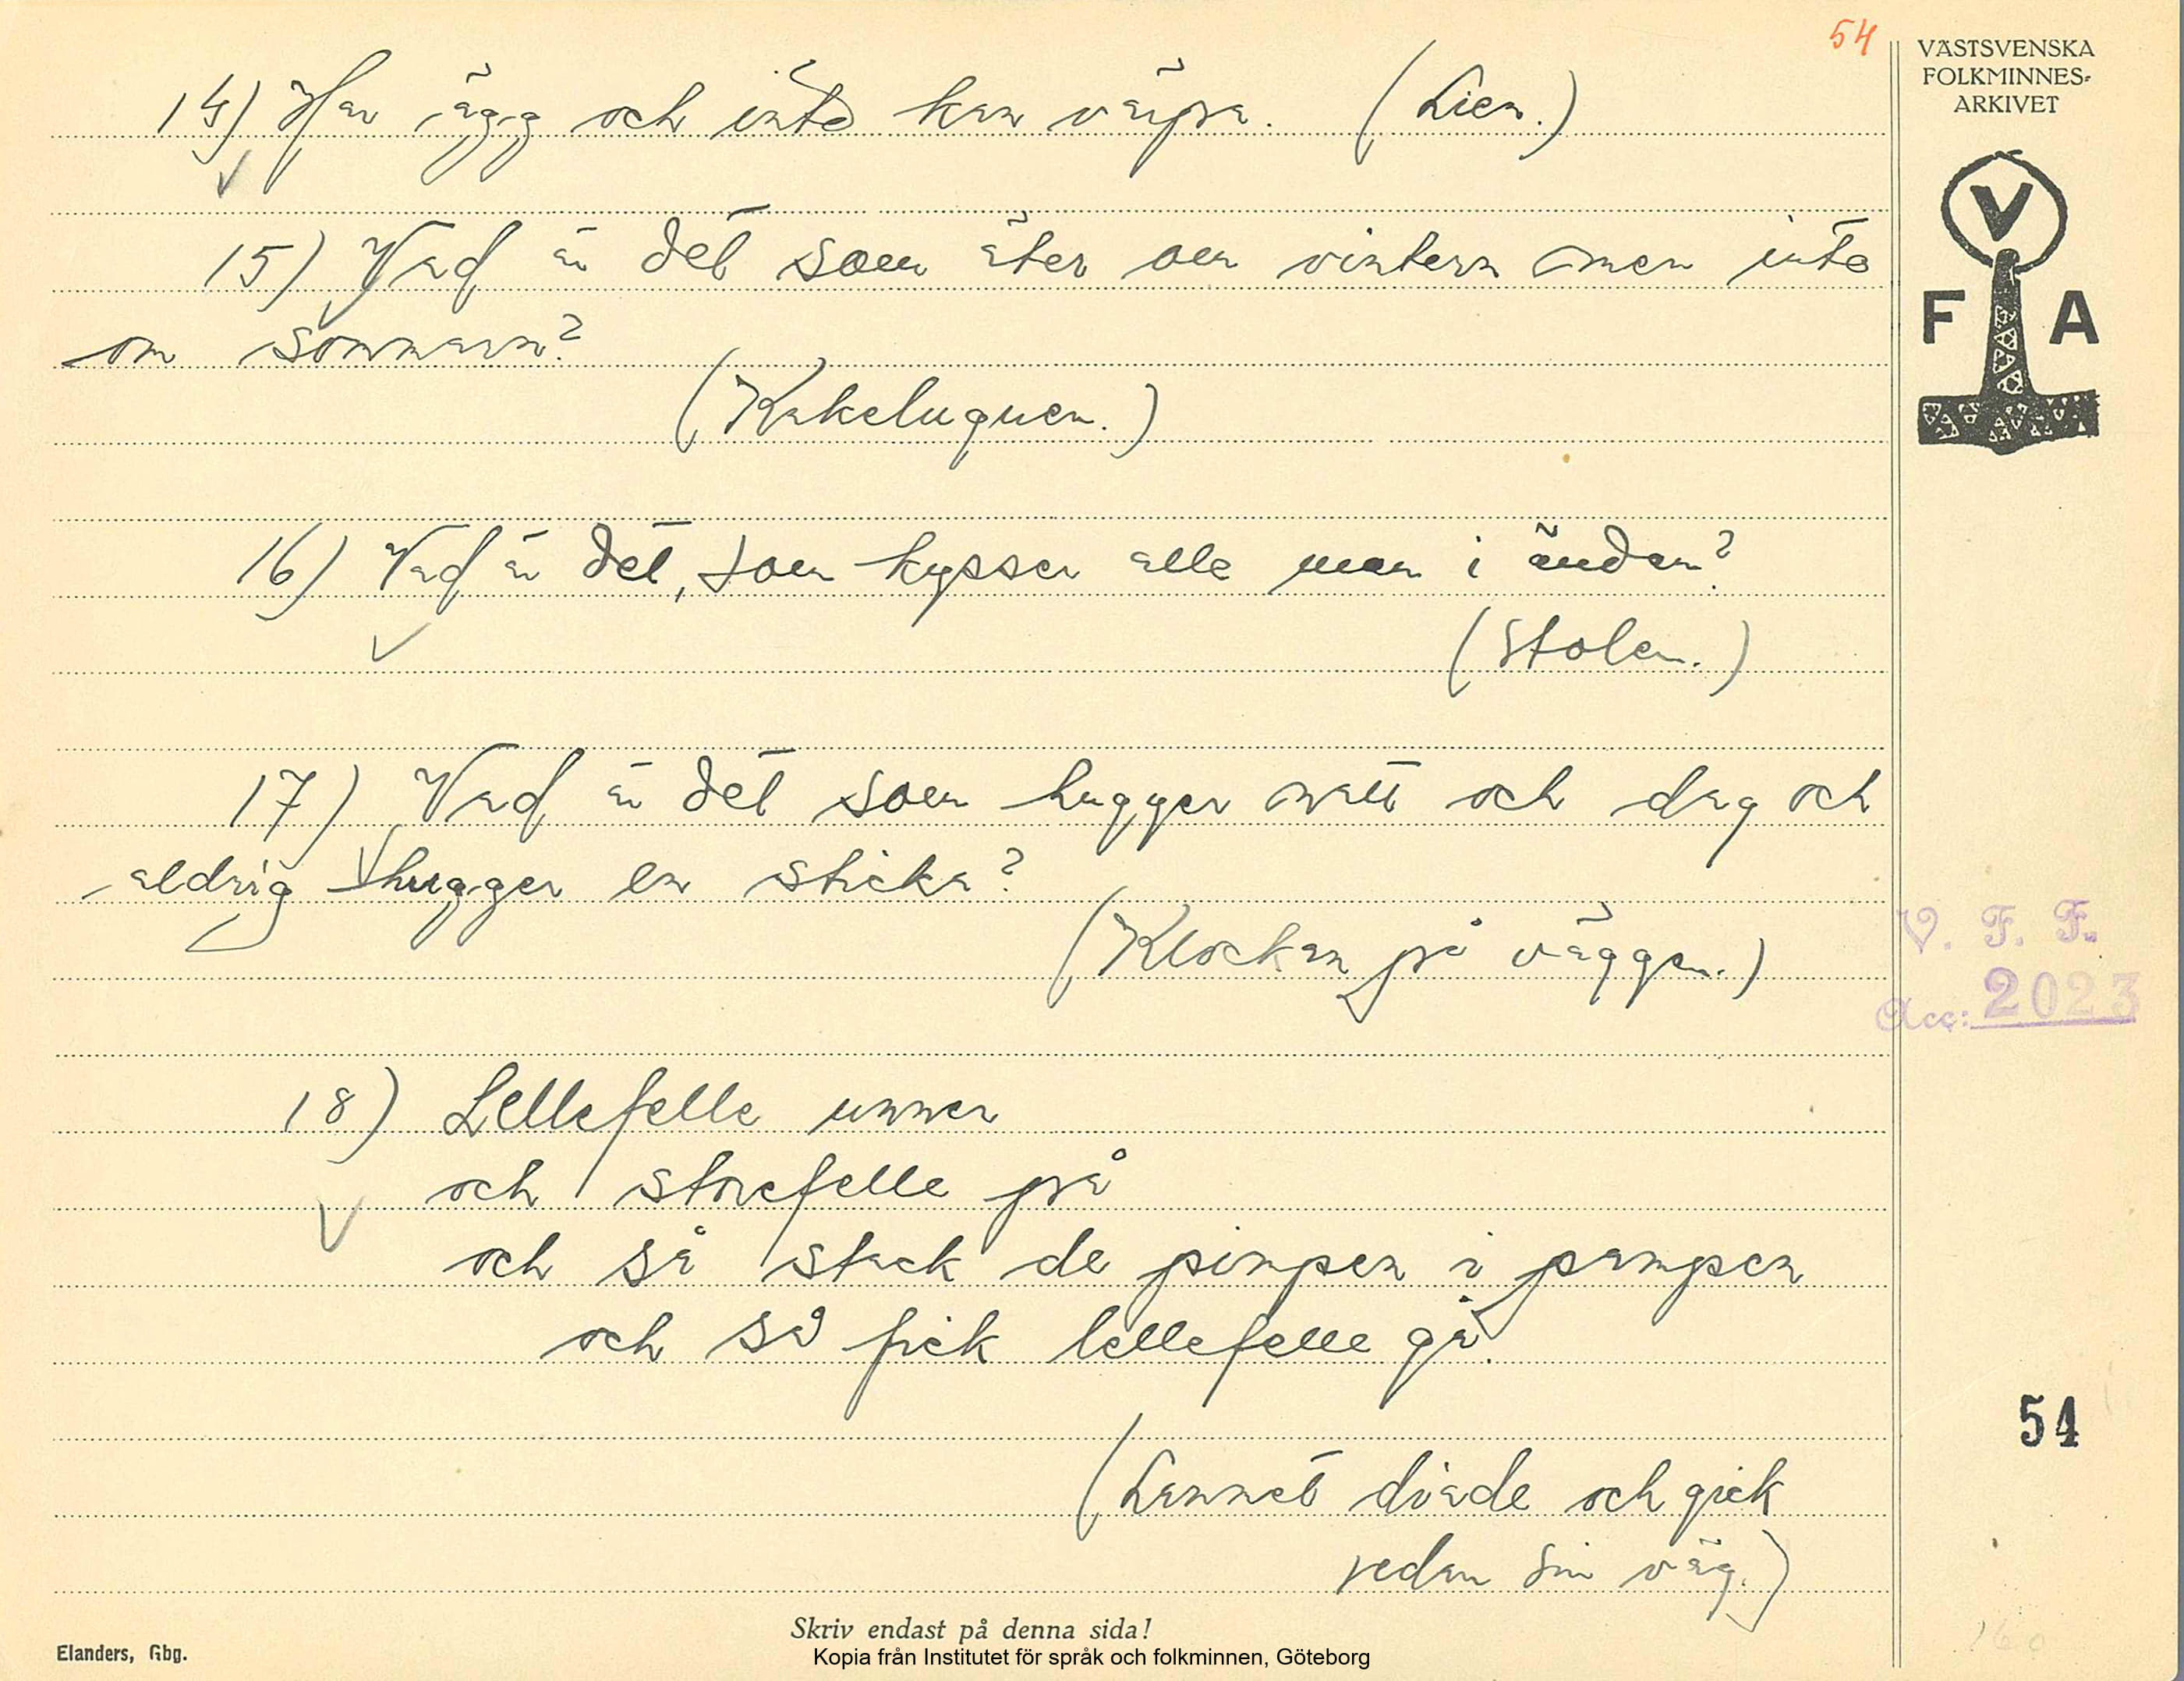 54
VÄSTSVENSKA
FOLKMINNES-
ARKIVET
V
F A
14) Har ägg och inte kan värpa. (Lien.)
15) Vad är det som äter om vintern men inte
om sommarn?
(Kakelugnen.)
16) Vad är det, som kysser alla man i ändan?
(Stolen.)
17) Vad är det som hugger natt och dag och
aldrig hugger en sticka?
(Klockan på väggen.)
V. F. F.
Acc: 2023
18) Lellefelle unner
och storefelle på
och så stack de pimpen i pampen
och så fick lellefelle gå.
54
(Lammet diade och gick
sedan sin väg.)
160
Skriv endast på denna sida!
Elanders, Gbg.
Kopia från Institutet för språk och folkminnen, Göteborg